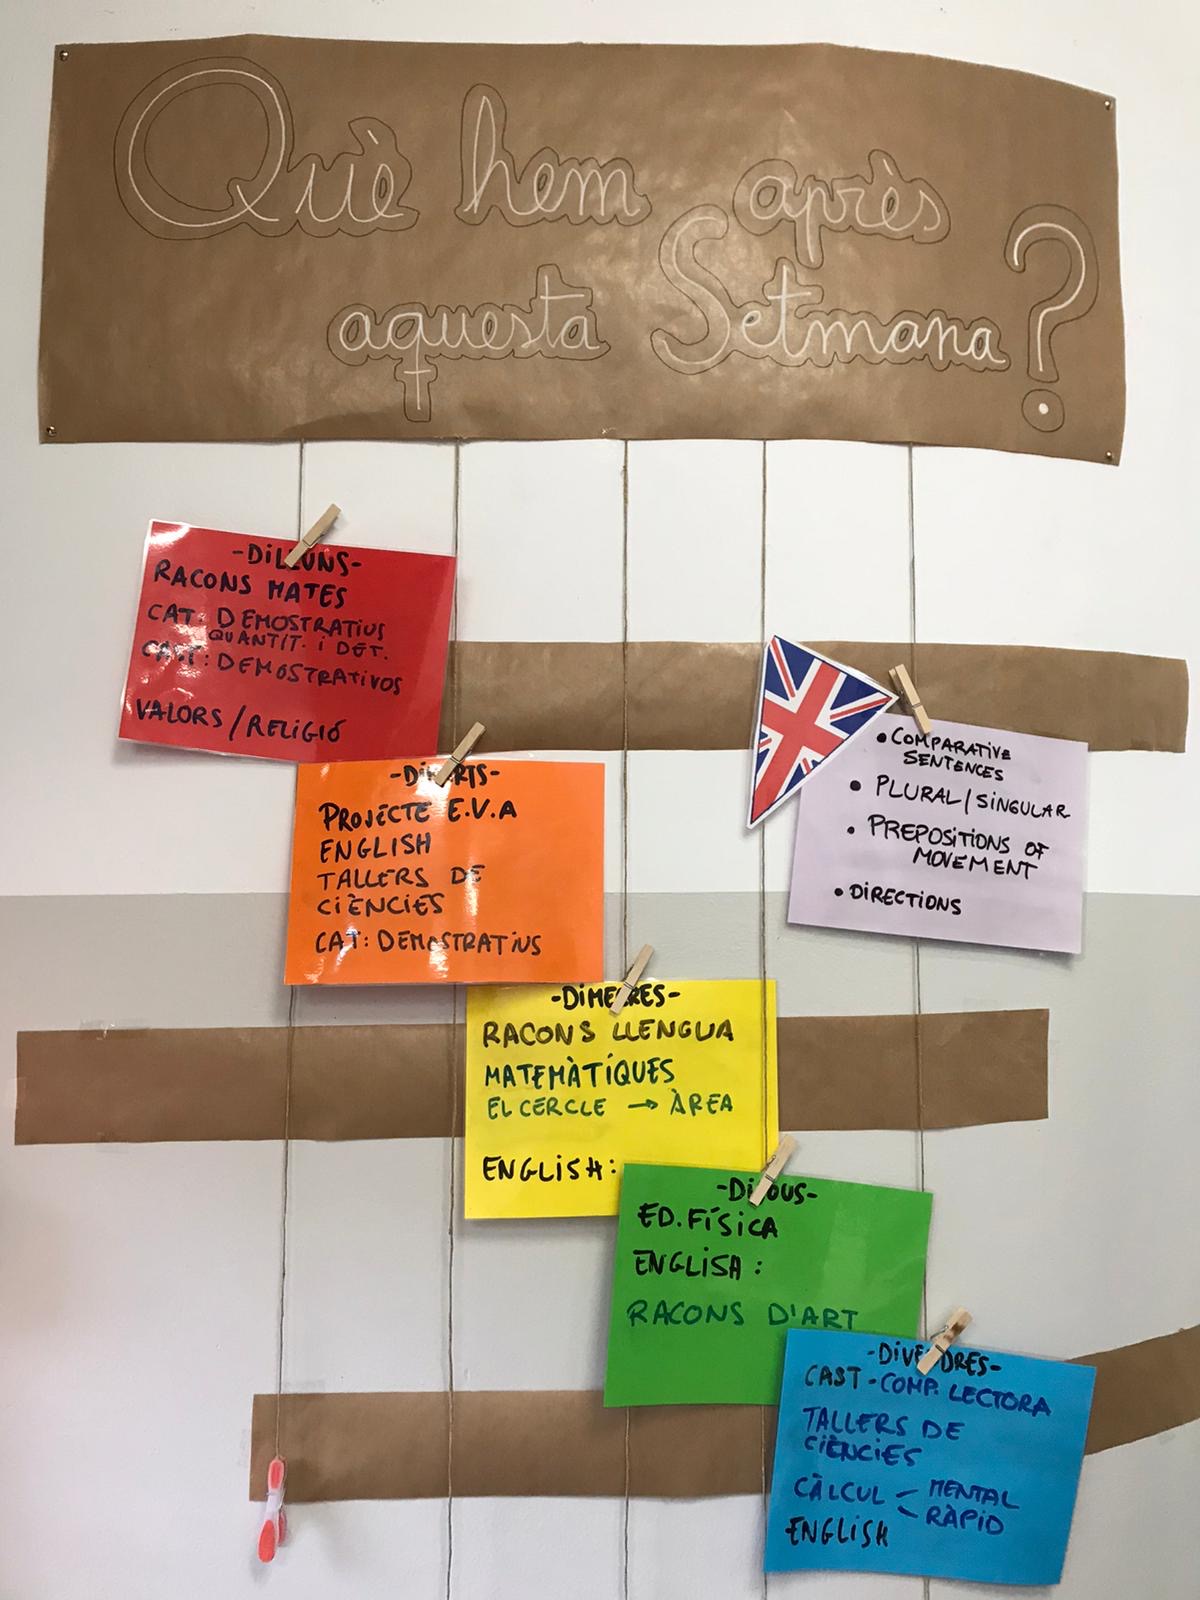 Què hem après
aquesta Setmana?
-DILLUNS-
RACONS MATES
CAT: DEMOSTRATIUS
QUANTIT. I DET.
CAST: DEMOSTRATIVOS
VALORS/RELIGIÓ
-DIMARTS-
PROJECTE E.V.A
ENGLISH
TALLERS DE
CIÈNCIES
CAT: DEMOSTRATIUS
• COMPARATIVE
SENTENCES
• PLURAL/SINGULAR
• PREPOSITIONS OF
MOVEMENT
• DIRECTIONS
-DIMECRES-
RACONS LLENGUA
MATEMÀTIQUES
EL CERCLE → ÀREA
ENGLISH:
-DIJOUS-
ED. FÍSICA
ENGLISH:
RACONS D'ART
-DIVENDRES-
CAST-COMP. LECTORA
TALLERS DE
CIÈNCIES
CÀLCUL - MENTAL
- RÀPID
ENGLISH